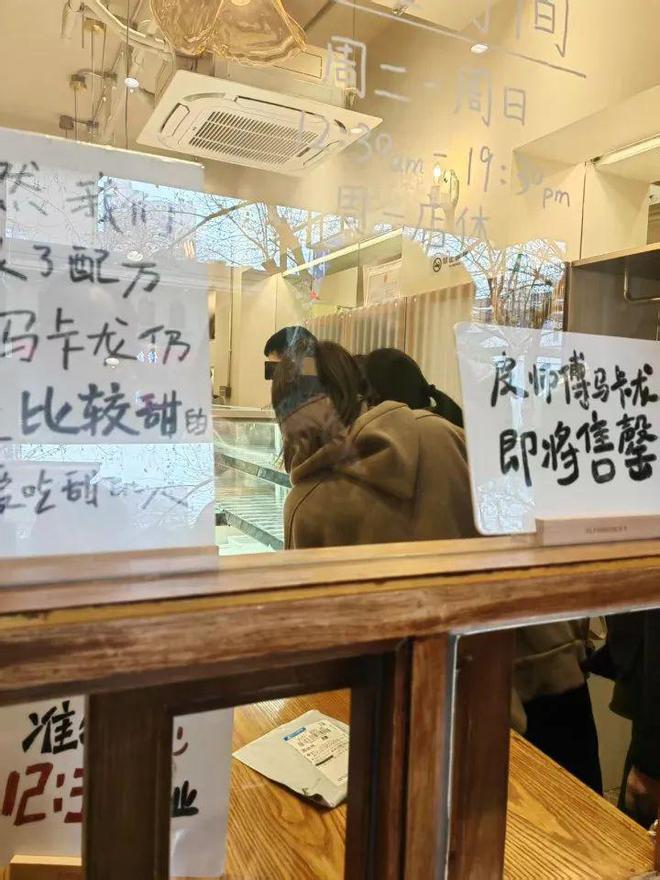 时间
周二-周日
12:30am-19:30pm
周一店休
然我们
了配方
马卡龙仍
比较甜的
爱吃甜
皮师傅马卡龙
即将售罄
准
12:3
业